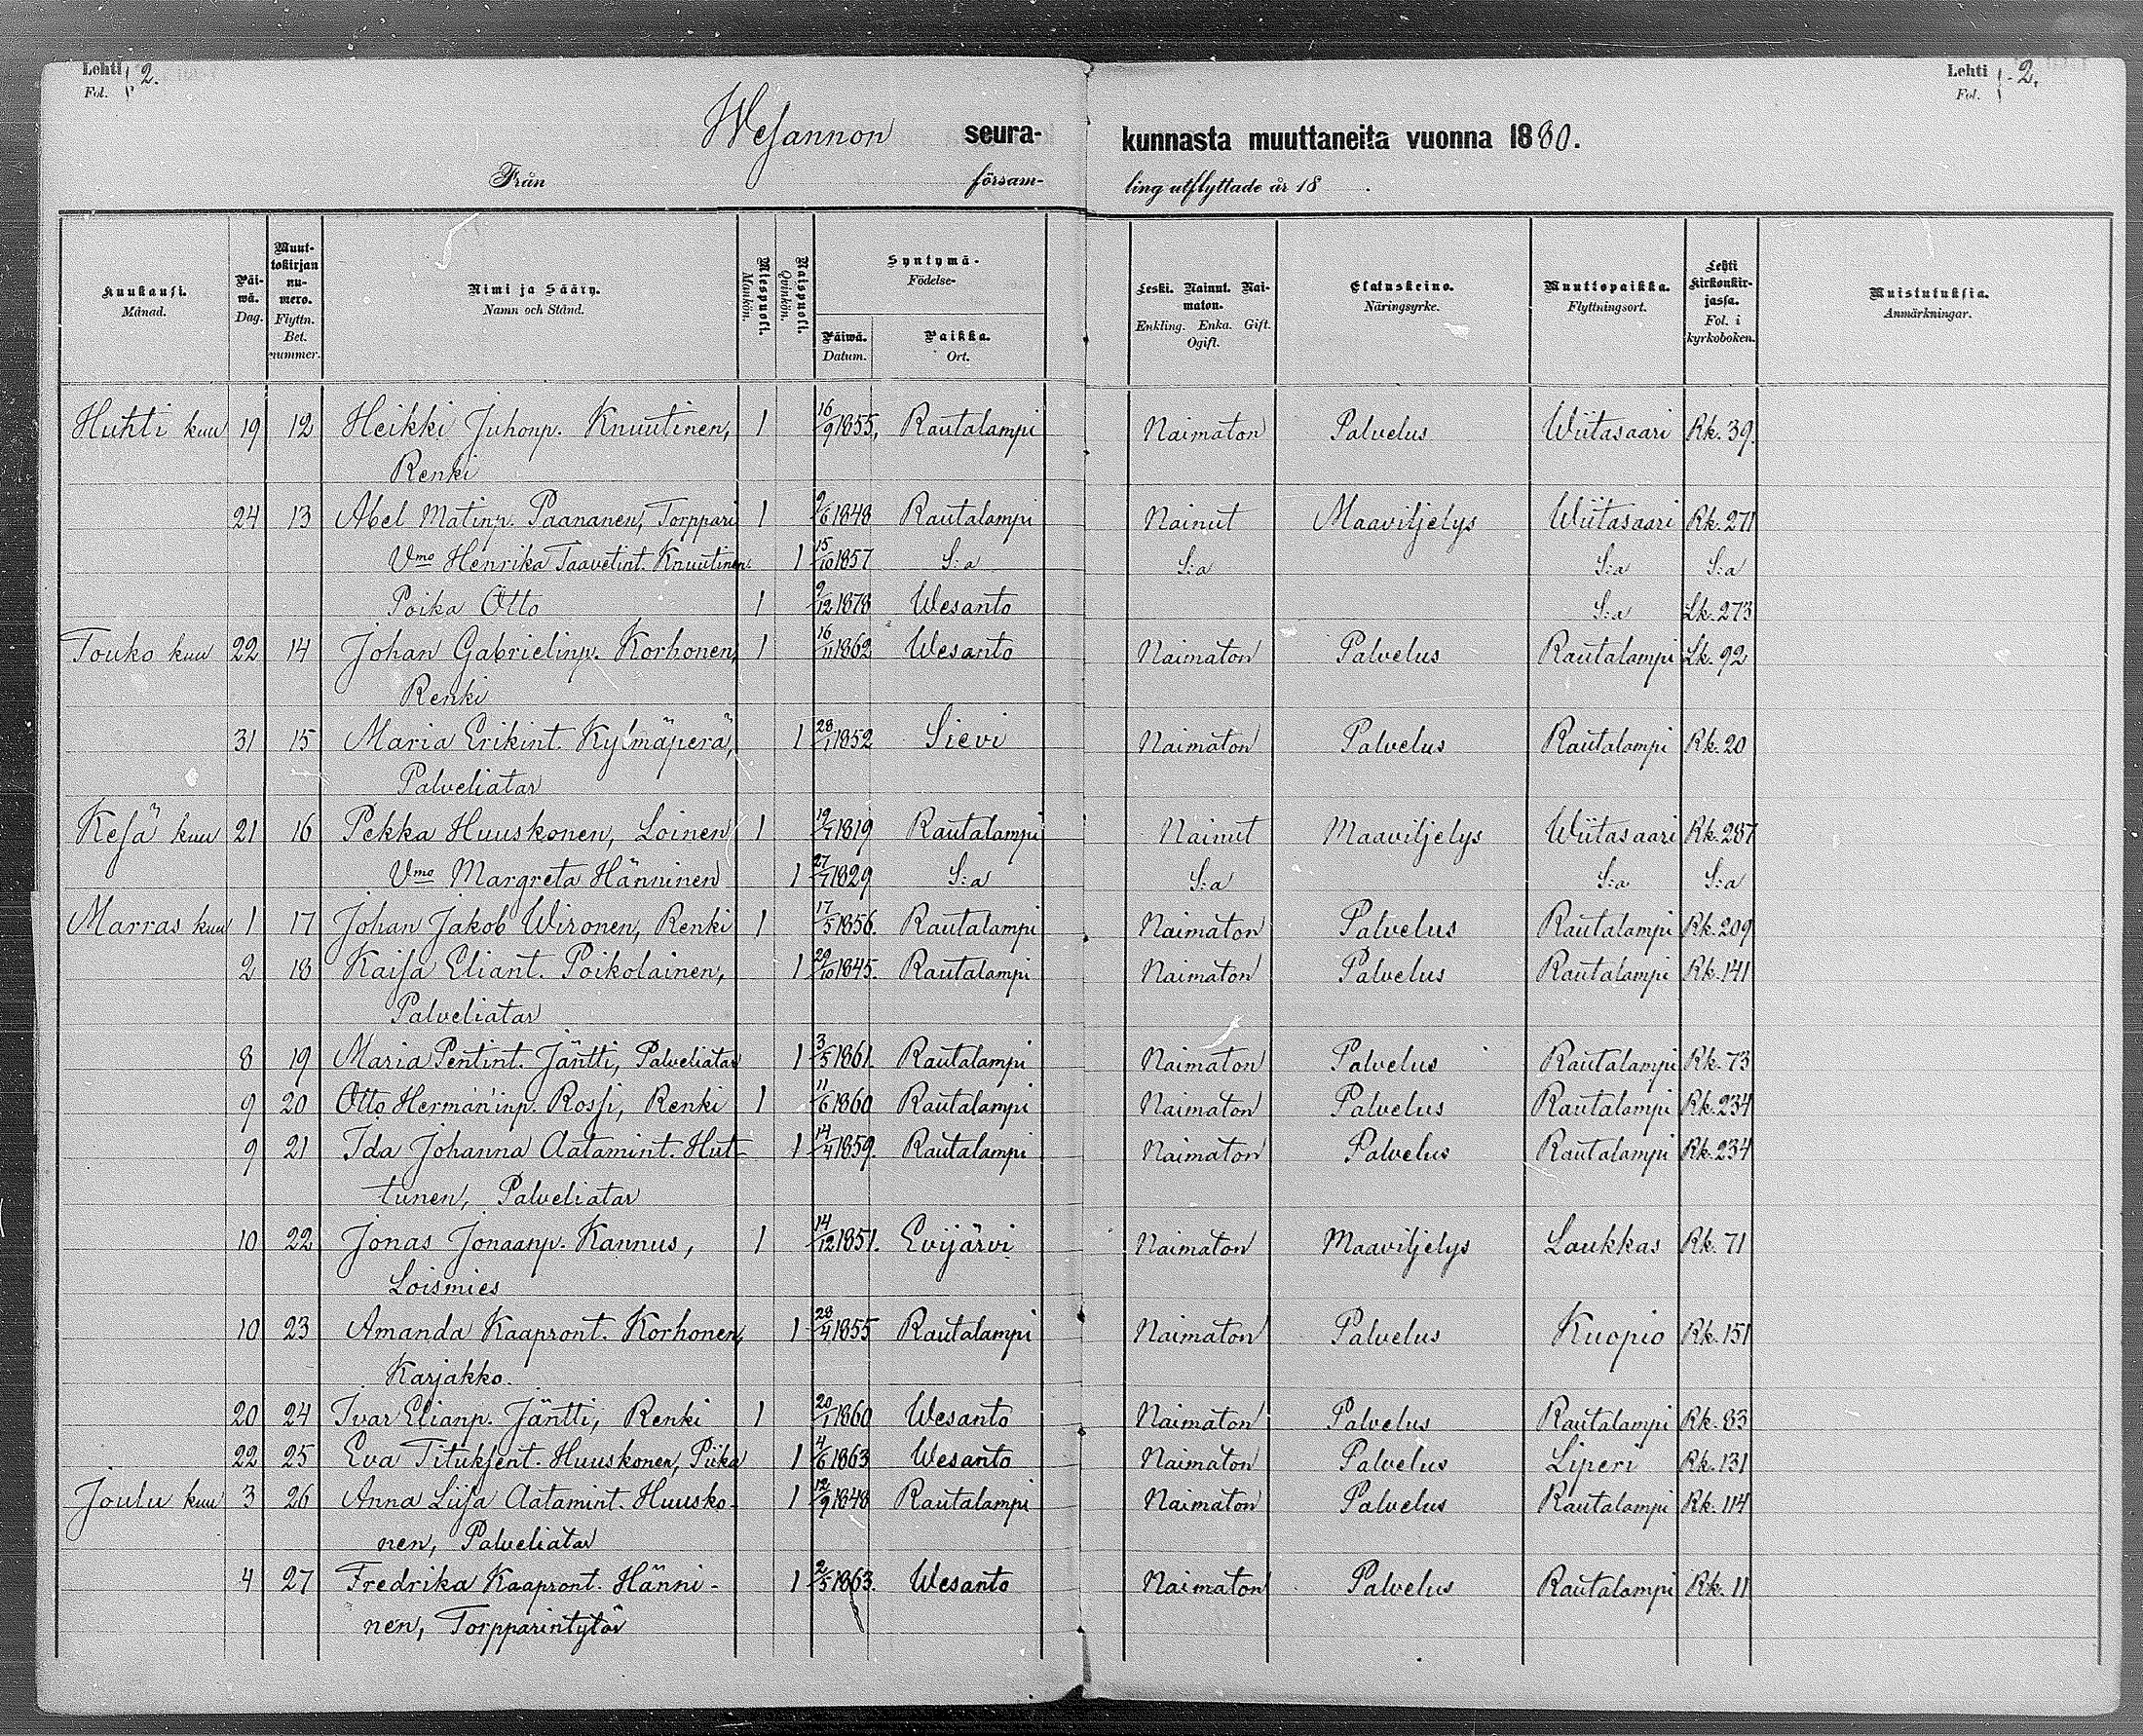 Lehti 2. Lehti 2.
Fol. Fol.
Wesannon seura- kunnasta muuttaneita vuonna 1880.
Från försam- ling utflyttade år 18 .
Kuukausi. Månad.
Päi-wä. Dag.
Muut-tokirjan nu-mero. Flyttn. Bet. nummer.
Nimi ja Sääty. Namn och Stånd.
Miespuoli. Mankön.
Naispuoli. Qvinkön.
Syntymä- Födelse-
Päiwä. Datum.
Paikka. Ort.
Leski. Nainut. Nai-maton. Enkling. Enka. Gift. Ogift.
Elatuskeino. Näringsyrke.
Muuttopaikka. Flyttningsort.
Lehti kirkonkir-jassa. Fol. i kyrkoboken.
Muistutuksia. Anmärkningar.
Huhti kuu 19 12 Heikki Juhonp. Knuutinen, 1 16/9 1855, Rautalampi Naimaton Palvelus Wiitasaari Rk. 39.
Renki
24 13 Abel Matinp. Paananen, Torppari 1 9/6 1848 Rautalampi Nainut Maaviljelys Wiitasaari Rk. 271
Vmo Henrika Taavetint. Knuutinen 1 15/10 1857 S:a S:a S:a S:a
Poika Otto 1 9/12 1878 Wesanto S:a Lk. 273
Touko kuu 22 14 Johan Gabrielinp. Korhonen, 1 16/11 1862 Wesanto Naimaton Palvelus Rautalampi Lk. 92
Renki
31 15 Maria Erikint. Kylmäperä, 1 28/1 1852 Sievi Naimaton Palvelus Rautalampi Rk. 20
Palveliatar
Kesä kuu 21 16 Pekka Huuskonen, Loinen 1 19/7 1819 Rautalampi Nainut Maaviljelys Wiitasaari Rk. 287
Vmo Margreta Hänninen 1 27/7 1829 S:a S:a S:a S:a
Marras kuu 1 17 Johan Jakob Wironen, Renki 1 17/5 1856. Rautalampi Naimaton Palvelus Rautalampi Rk. 209
2 18 Kaisa Eliant. Poikolainen, 1 29/10 1845. Rautalampi Naimaton Palvelus Rautalampi Rk. 141
Palveliatar
8 19 Maria Pentint. Jäntti, Palveliatar 1 3/5 1861. Rautalampi Naimaton Palvelus Rautalampi Rk. 73
9 20 Otto Herman'inp. Rossi, Renki 1 11/6 1860 Rautalampi Naimaton Palvelus Rautalampi Rk. 234
9 21 Ida Johanna Aatamint. Hut- 1 14/4 1859. Rautalampi Naimaton Palvelus Rautalampi Rk. 234
tunen, Palveliatar
10 22 Jonas Jonaanp. Kannus, 1 14/12 1851. Evijärvi Naimaton Maaviljelys Laukkas Rk. 71
Loismies
10 23 Amanda Kaapront. Korhonen, 1 28/4 1855 Rautalampi Naimaton Palvelus Kuopio Rk. 151
Karjakko.
20 24 Ivar Elianp. Jäntti, Renki 1 20/1 1860 Wesanto Naimaton Palvelus Rautalampi Rk. 83
22 25 Eva Tituksent. Huuskonen, Piika 1 4/6 1863 Wesanto Naimaton Palvelus Liperi Rk. 131
Joulu kuu 3 26 Anna Liisa Aatamint. Huusko- 1 12/9 1848 Rautalampi Naimaton Palvelus Rautalampi Rk. 114
nen, Palveliatar
4 27 Fredrika Kaapront. Hänni- 1 2/5 1863. Wesanto Naimaton Palvelus Rautalampi Rk. 11
nen, Torpparintytär